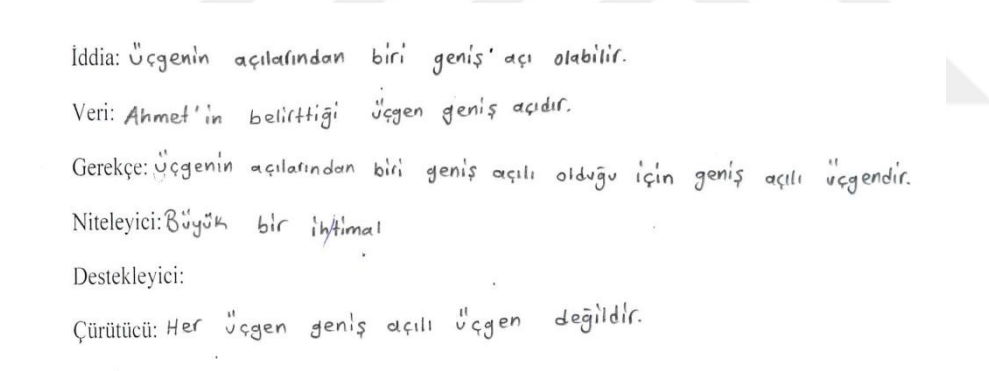 İddia: Üçgenin açılarından biri geniş açı olabilir.
Veri: Ahmet'in belirttiği üçgen geniş açıdır.
Gerekçe: Üçgenin açılarından biri geniş açılı olduğu için geniş açılı üçgendir.
Niteleyici: Büyük bir ihtimal
Destekleyici:
Çürütücü: Her üçgen geniş açılı üçgen değildir.